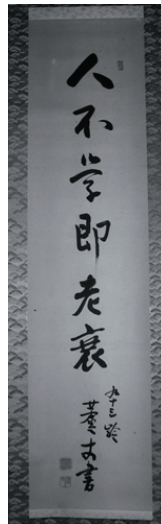 人不学即老衰
九十三齢
書